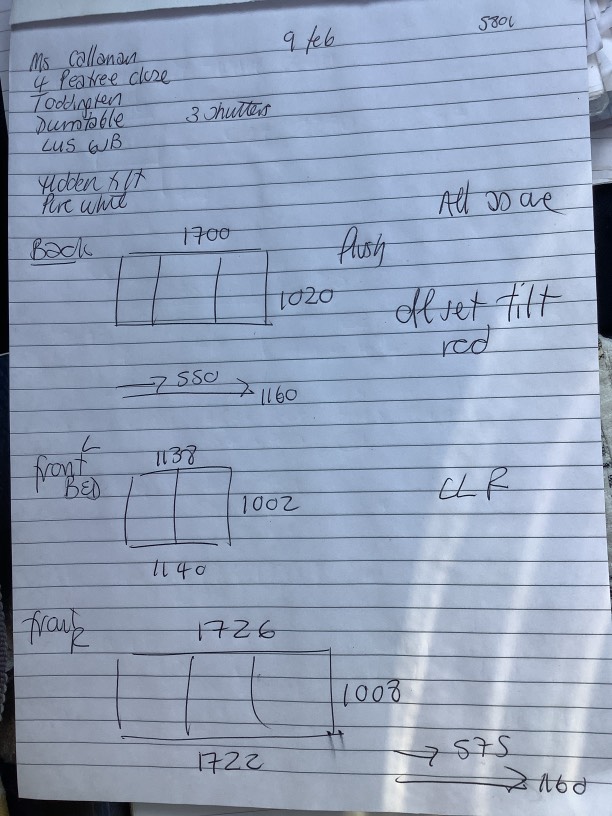 9 feb
5801
Ms Callanan
4 Peatree close
Toddington
Dunstable
LU5 6JB
3 shutters
Hidden tilt
Pure white
All so are
Back
1700
flush
1020
offset tilt
rod
550
1160
front L
BED
1138
1002
1140
CL R
front R
1726
1008
1722
575
1160